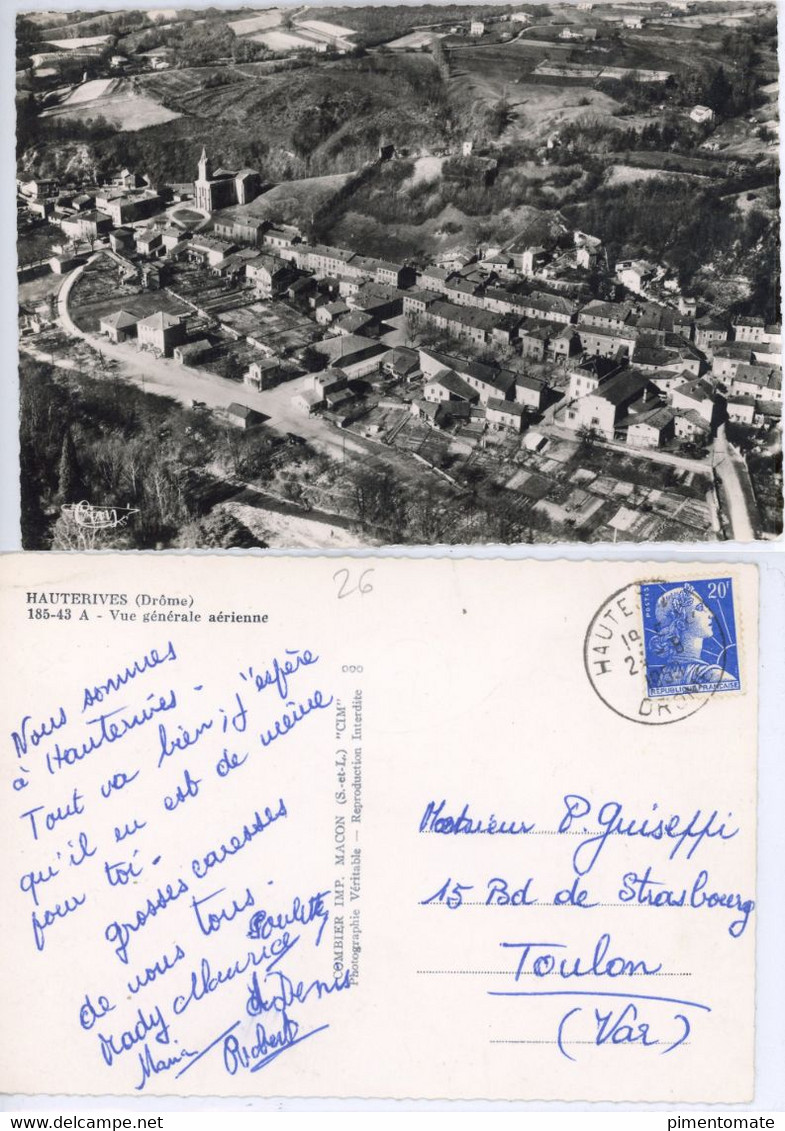 Cim
HAUTERIVES (Drôme)
185-43 A - Vue générale aérienne
26
Nous sommes
à Hauterives -
Tout va bien ; J"espère
qu'il en est de même
pour toi -
grosses caresses
de nous tous -
Paulette
Mady Maurice
Denis
Marie
Robert
COMBIER IMP. MACON (S.-et-L.) "CIM"
Photographie Véritable - Reproduction Interdite
POSTES
20F
REPUBLIQUE FRANÇAISE
Monsieur P. Guiseppi
15 Bd de Strasbourg
Toulon
(Var)
pimentomate